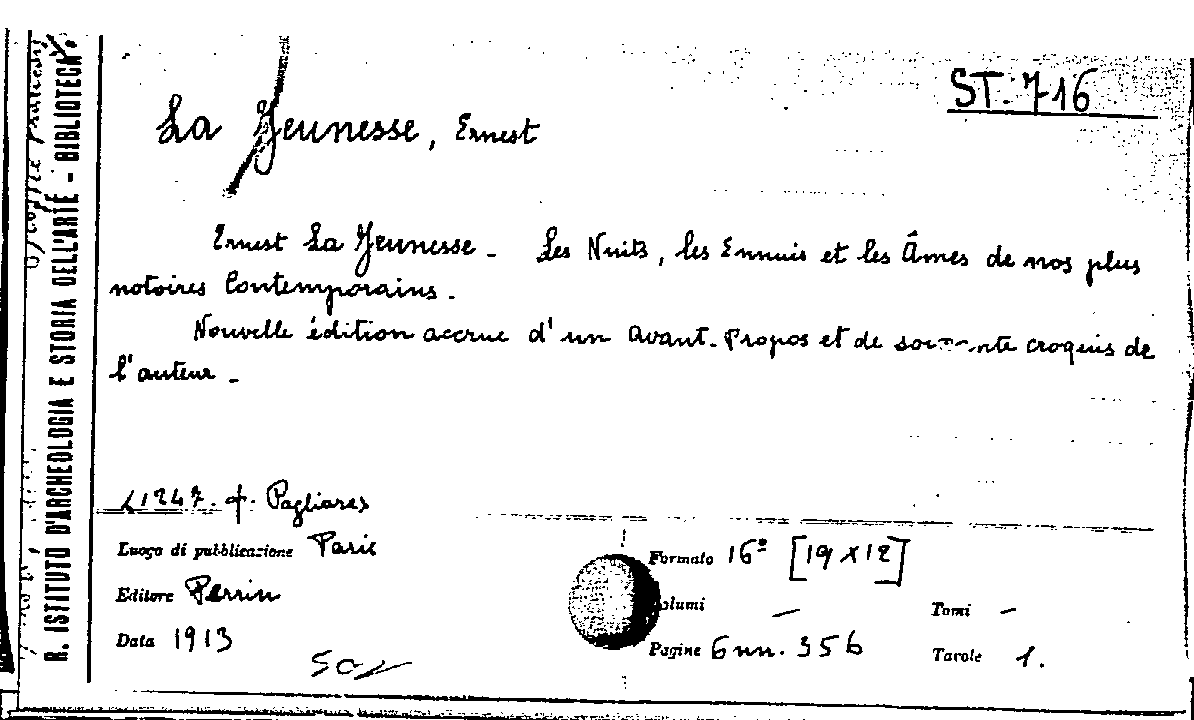 ST. 716
La Jeunesse, Ernest
Ernest La Jeunesse - Les Nuits, les Ennuis et les Âmes de nos plus
notoires Contemporains.
Nouvelle édition accrue d'un Avant-Propos et de soixante croquis de
l'auteur -
Pagliares
Luogo di pubblicazione Paris
Editore Perrin
Data 1913
Formato 16º [19 x 12]
Volumi —
Tomi —
Pagine 6 nn. 356
Tavole 1.
R. ISTITUTO D'ARCHEOLOGIA E STORIA DELL'ARTE - BIBLIOTECA